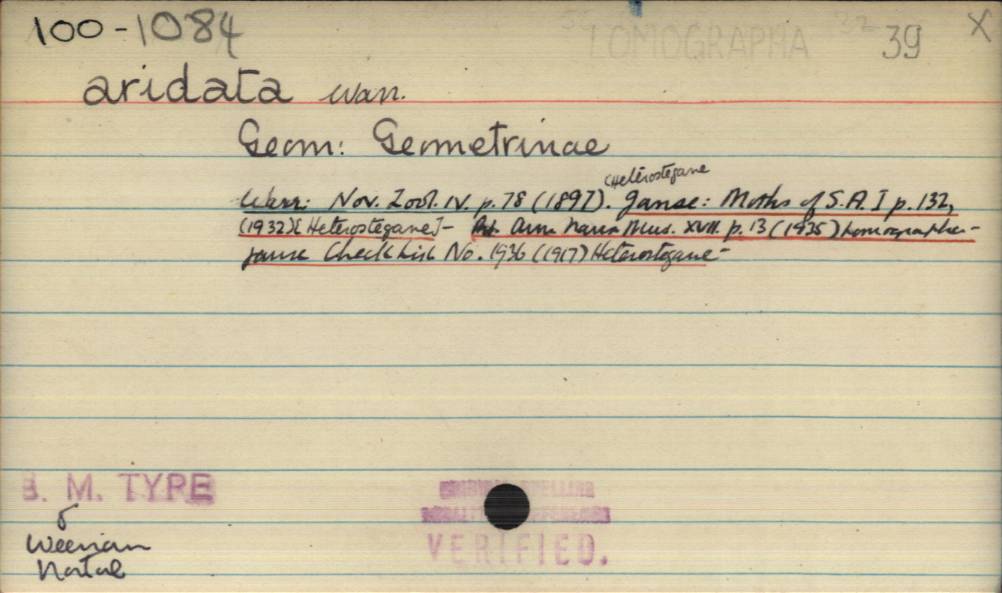 100-1084 LOMOGRAPHA 39 X
aridata Warr.
Geom: Geometrinae
(Heterostegane
Warr: Nov. Zool. IV. p. 78 (1897). Janse: Moths of S.A. I p. 132,
(1932) [Heterostegane] - Ann. Mus. XVII. p. 13 (1935) Lomographa -
Janse Check List No. 1936 (1917) Heterostegane -
B. M. TYPE
ORIGINAL SPELLING
REFERENCE
VERIFIED.
Weenan
Natal